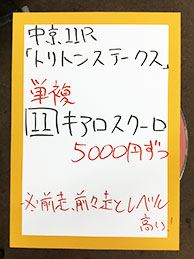 中京11R
「トリトンステークス」
単複
11キアロスクーロ
5000円ずつ
※前走、前々走とレベル
高い!